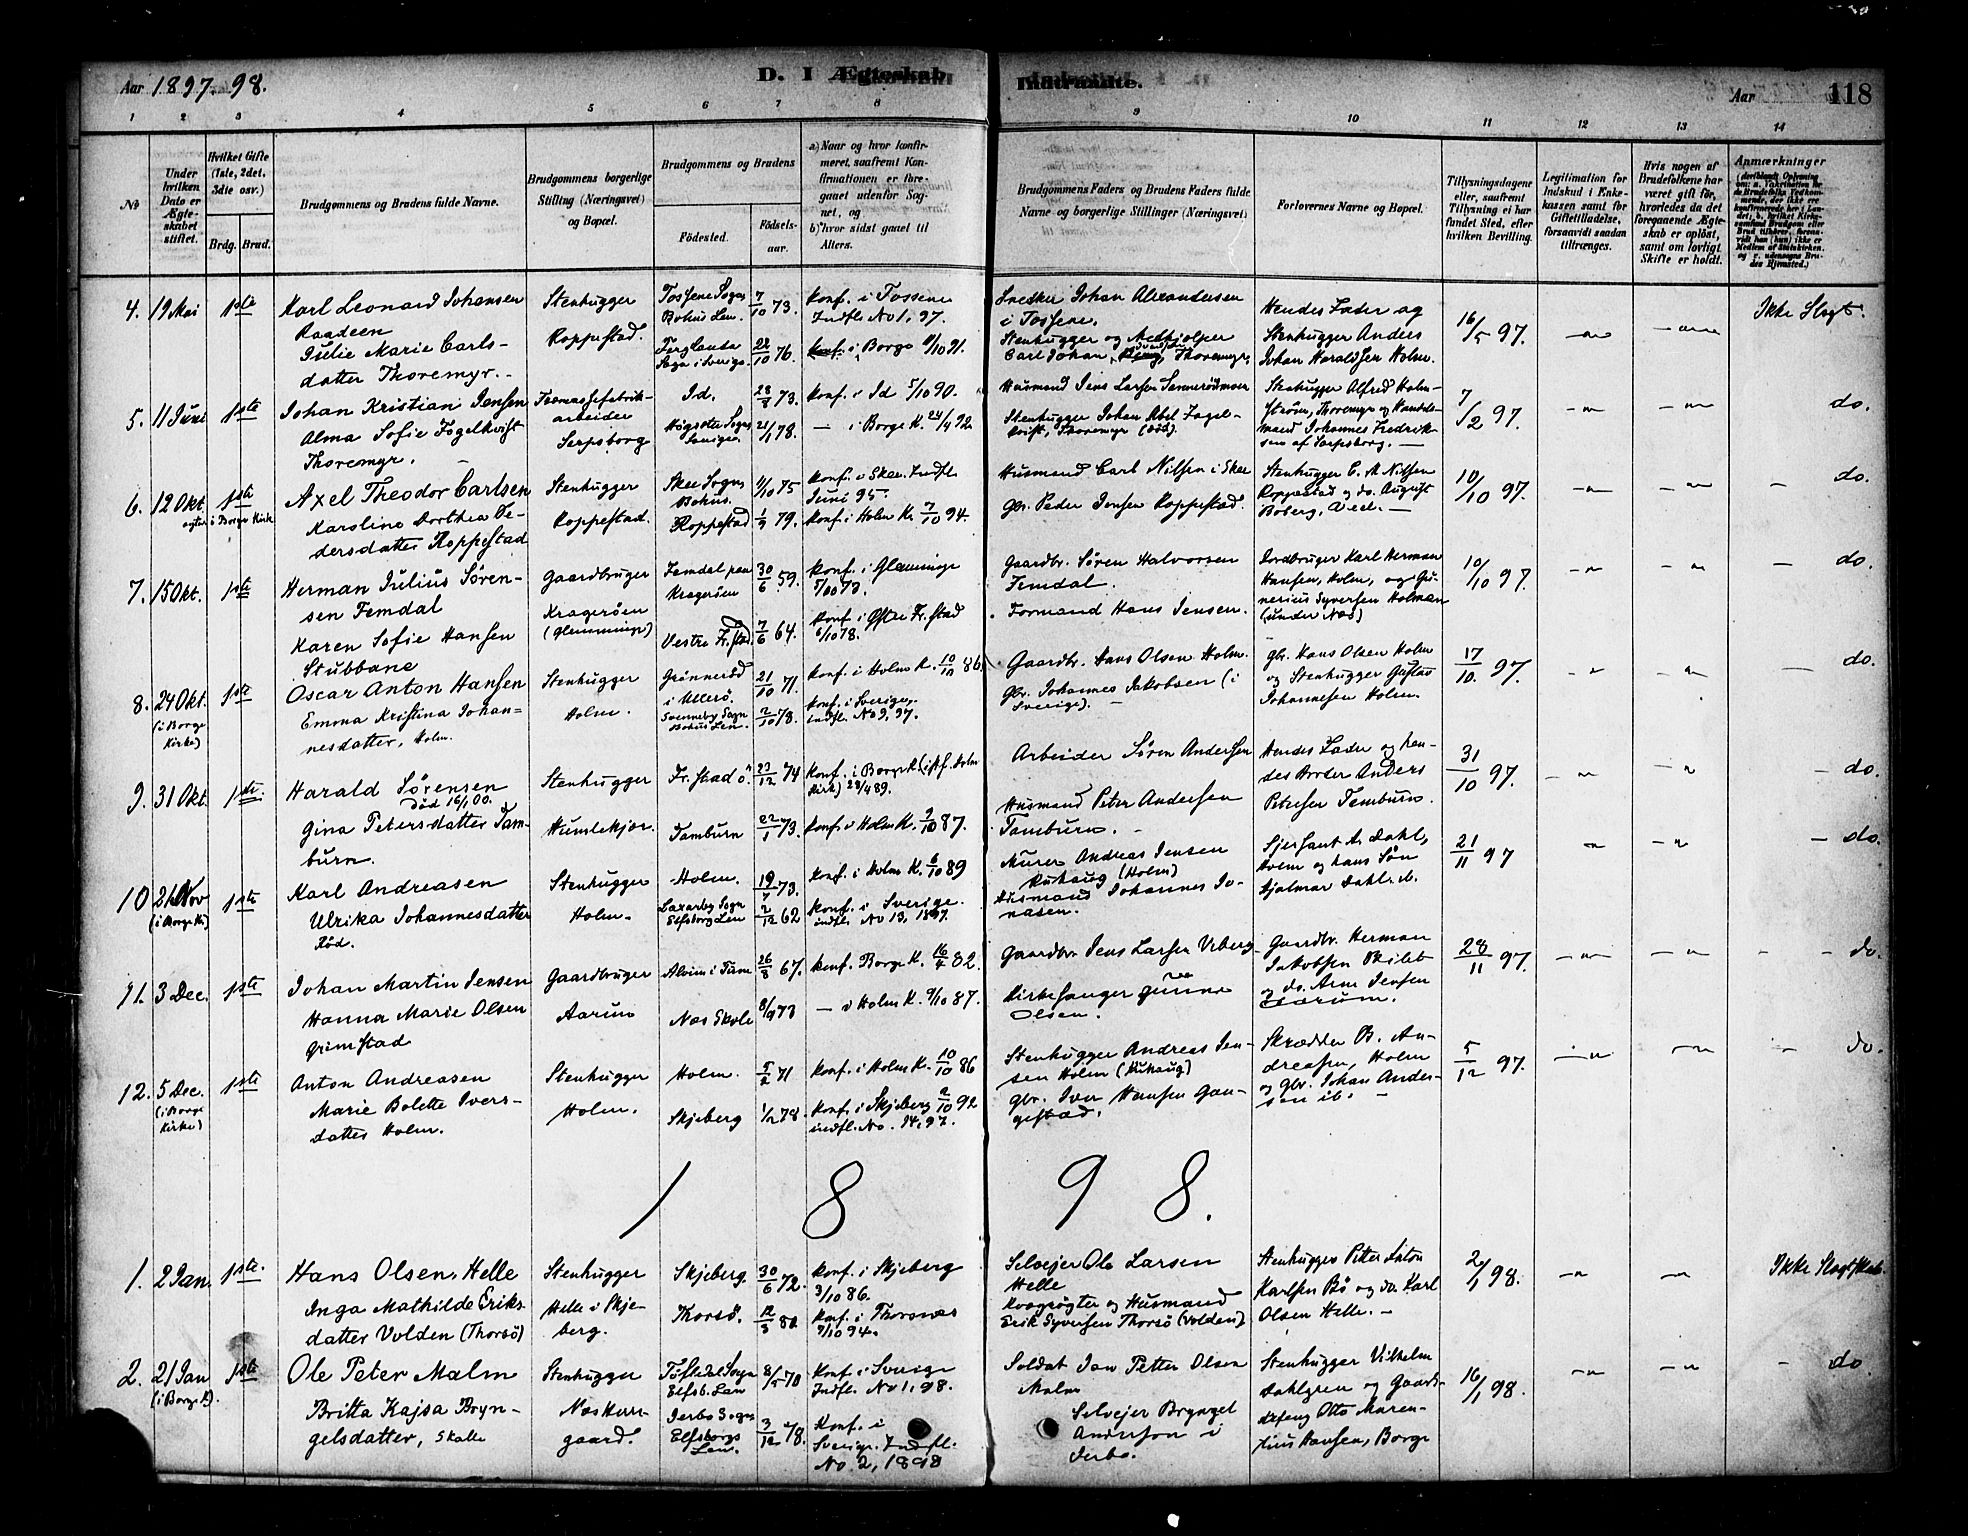 Aar 1897-98.
D. I Ægteskab
Indtraadte.
Aar 118
1 2 3 4 5 6 7 8 9 10 11 12 13 14
No
Under hvilken Dato er Ægteskabet stiftet.
Hvilket Gifte (1ste, 2det, 3die osv.)
Brdg. Brud.
Brudgommens og Brudens fulde Navne.
Brudgommens borgerlige Stilling (Næringsvei) og Bopæl.
Brudgommens og Brudens
Fødested.
Fødselsaar.
a) Naar og hvor konfirmeret, saafremt Konfirmationen er foregaaet udenfor Sognet, og
b) hvor sidst gaaet til Alters.
Brudgommens Faders og Brudens Faders fulde Navne og borgerlige Stillinger (Næringsvei)
Forlovernes Navne og Bopæl.
Tillysningsdagene eller, saafremt Tillysning ei har fundet Sted, efter hvilken Bevilling.
Legitimation for Indskud i Enkekassen samt for Giftetilladelse, forsaavidt saadan tiltrænges.
Hvis nogen af Brudefolkene har været gift før, hvorledes da det foregaaende Ægteskab er opløst, samt om lovligt Skifte er holdt.
Anmærkninger
4. 19 Mai 1ste
Karl Leonard Johansen
Raadeen
Julie Marie Carls-
datter Thoremyr.
Stenhugger
Roppestad.
Tossene Sogn
Bohus Len.
7/10 73.
22/10 76.
konf. i Tossene
Indfl. No 1, 97.
i Borge 4/10 91.
Snedker Johan Alexandersen
i Tossene.
Stenhugger og
Carl Johan Thoremyr.
Hendes Fader og
Stenhugger Anders
Johan Haraldsen Holm.
16/5 97.
Ikke Slegt.
5. 11 Juni 1ste
Johan Kristian Jensen
Alma Sofie Fogelkvist
Thoremyr.
arbeider
Sarpsborg
Id.
Sverige.
28/3 73.
21/1 78.
konf. i Id 5/10 90.
— i Borge K. 24/4 92
Husmand Jens Larsen
Stenhugger Johan Abel Fogel-
kvist, Thoremyr (død).
Stenhugger Alfred Holm-
strøm, Thoremyr og Handels-
mand Johannes Fredrik-
sen af Sarpsborg.
7/2 97.
do.
6. 12 Okt. 1ste
i Borge Kirk
Axel Theodor Carlsen
Karoline Dorthea Pe-
dersdatter Roppestad
Stenhugger
Roppestad.
Skee Sogn
Bohus.
Roppestad
11/10 75
1/9 79.
konf. i Skee. Indfl.
Juni 95.
konf. i Holm K. 7/10 94.
Husmand Carl Nilsen i Skee
Gbr. Peder Jensen Roppestad.
Stenhugger C. M. Nilsen
Roppestad og do. August
Boberg,
10/10 97.
do.
7. 15 Okt. 1ste
Herman Julius Søren-
sen Femdal
Karen Sofie Hansen
Stubbane
Gaardbruger
Kragerøen
(Glemminge)
Femdal paa
Kragerøen
Vestre Fr.stad
30/6 59.
7/6 64.
konf. i Glemminge
konf i Østre Fr.stad
6/10 78.
Gaardbr. Søren Halvorsen
Femdal.
Formand Hans Jensen.
Jordbruger Karl Herman
Hansen, Holm, og Gu-
nerius Syversen Holman
(under Næs)
10/10 97.
do.
8. 24 Okt. 1ste
(i Borge
Kirke)
Oscar Anton Hansen
Emma Kristina Johan-
nesdatter, Holm.
Stenhugger
Holm.
Grønnerød
i Ullerø.
Svenneby Sogn
Bohus Len.
21/10 71.
2/10 78.
konf. i Holm K. 10/10 86.
konf. i Sverige,
indfl. No 9, 97.
Gaardbr. Hans Olsen Holm.
Gbr. Johannes Jakobsen (i
Sverige).
Gbr. Hans Olsen Holm
og Stenhugger Gustav
Johannesen Holm.
17/10. 97.
do.
9. 31 Okt. 1ste.
Harald Sørensen
Død 16/1 00.
Gina Petersdatter Tam-
burn.
Stenhugger
Humlekjær.
Fr.stad
Tamburn
23/12 74
22/1 73.
konf. i Borge K. (i Holm
Kirk) 28/4 89.
konf. i Holm K. 2/10 87.
Arbeider Søren Andersen
Husmand Peter Andersen
Tamburn.
Hendes Fader og hen-
des Broder Anders
Petersen Tamburn.
31/10 97.
do.
10 21 Nov 1ste
(i Borge K.)
Karl Andreasen
Ulrika Johannesdatter
Rød.
Stenhugger
Holm.
Holm.
Laxarby Sogn
Elfsborg Len
19/7 73.
2/12 62
konf. i Holm K. 6/10 89
konf. i Sverige.
indfl. No 13, 1897.
Murer Andreas Jensen
Kuhaug (Holm)
Husmand Johannes Jo-
nasen.
Sjersant A. Dahl,
Holm og hans Søn
Hjalmar Dahl. ib.
21/11 97
do.
11. 3 Dec. 1ste
Johan Martin Jensen
Hanna Marie Olsen
Grimstad
Gaardbruger
Aarum
Alvim i Tune
Næs Skole
26/8 67.
8/9 73
konf. Borge K. 16/4 82.
— i Holm K. 9/10 87.
Gaardbr. Jens Larsen Viberg
Kirkesanger Gunne
Olsen.
Gaardbr. Herman
Jakobsen
og do. Arne Jensen
Aarum.
28/11 97.
do.
12. 5 Dec. 1ste
(i Borge
Kirke)
Anton Andreasen
Marie Bolette Ivers-
datter Holm.
Stenhugger
Holm.
Holm.
Skjeberg
5/2 71
1/2 78
konf. i Holm K. 10/10 86
konf. i Skjeberg 2/10 92
indfl. No. 14, 97.
Stenhugger Andreas Jen-
sen Holm (Kuhaug)
Gbr. Iver Hansen Gan-
gestad.
Skrædder B. An-
dreasen, Holm
og Gbr. Johan Ander-
sen ib.
5/12 97.
do.
1 8 9 8.
1. 2 Jan 1ste.
Hans Olsen, Helle
Inga Mathilde Eriks-
datter Volden (Thorsø)
Stenhugger
Helle i Skje-
berg.
Skjeberg.
Thorsø.
30/6 72.
konf. i Skjeberg
3/10 86.
konf. i Thorsnæs
7/10 94.
Selveier Ole Larsen
Helle
Kvægrøgter og Husmand
Erik Syversen Thorsø (Volden)
Stenhugger Peter Anton
Karlsen Bø og do. Karl
Olsen Helle.
2/1 98.
Ikke Slegtskab.
2. 21 Jan 1ste
(i Borge K).
Ole Peter Malm
Britta Kajsa Bryn-
gelsdatter, Skalle
Stenhugger
gaard.
Tøftedal Sogn
Elfsb. Len
Jerbo Sogn
Elfsborgs
Len.
8/5 70
3/12 78.
Konf. i Sverige
Indfl. No 1, 98.
Konf. i
Sverige. Indfl.
No 2, 1898
Soldat Jan Petter Olsen
Malm
Selveier Bryngel
Anderson i
Jerbo.
Stenhugger Vilhelm
Dahlgren og Gaard-
Otto Maren-
tius Hansen, Borge
16/1 98.
do